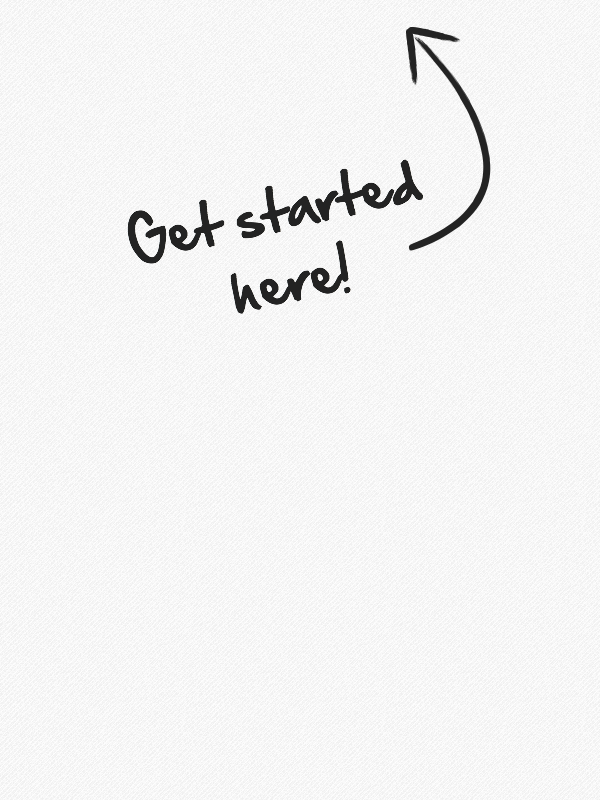 Get started
here!